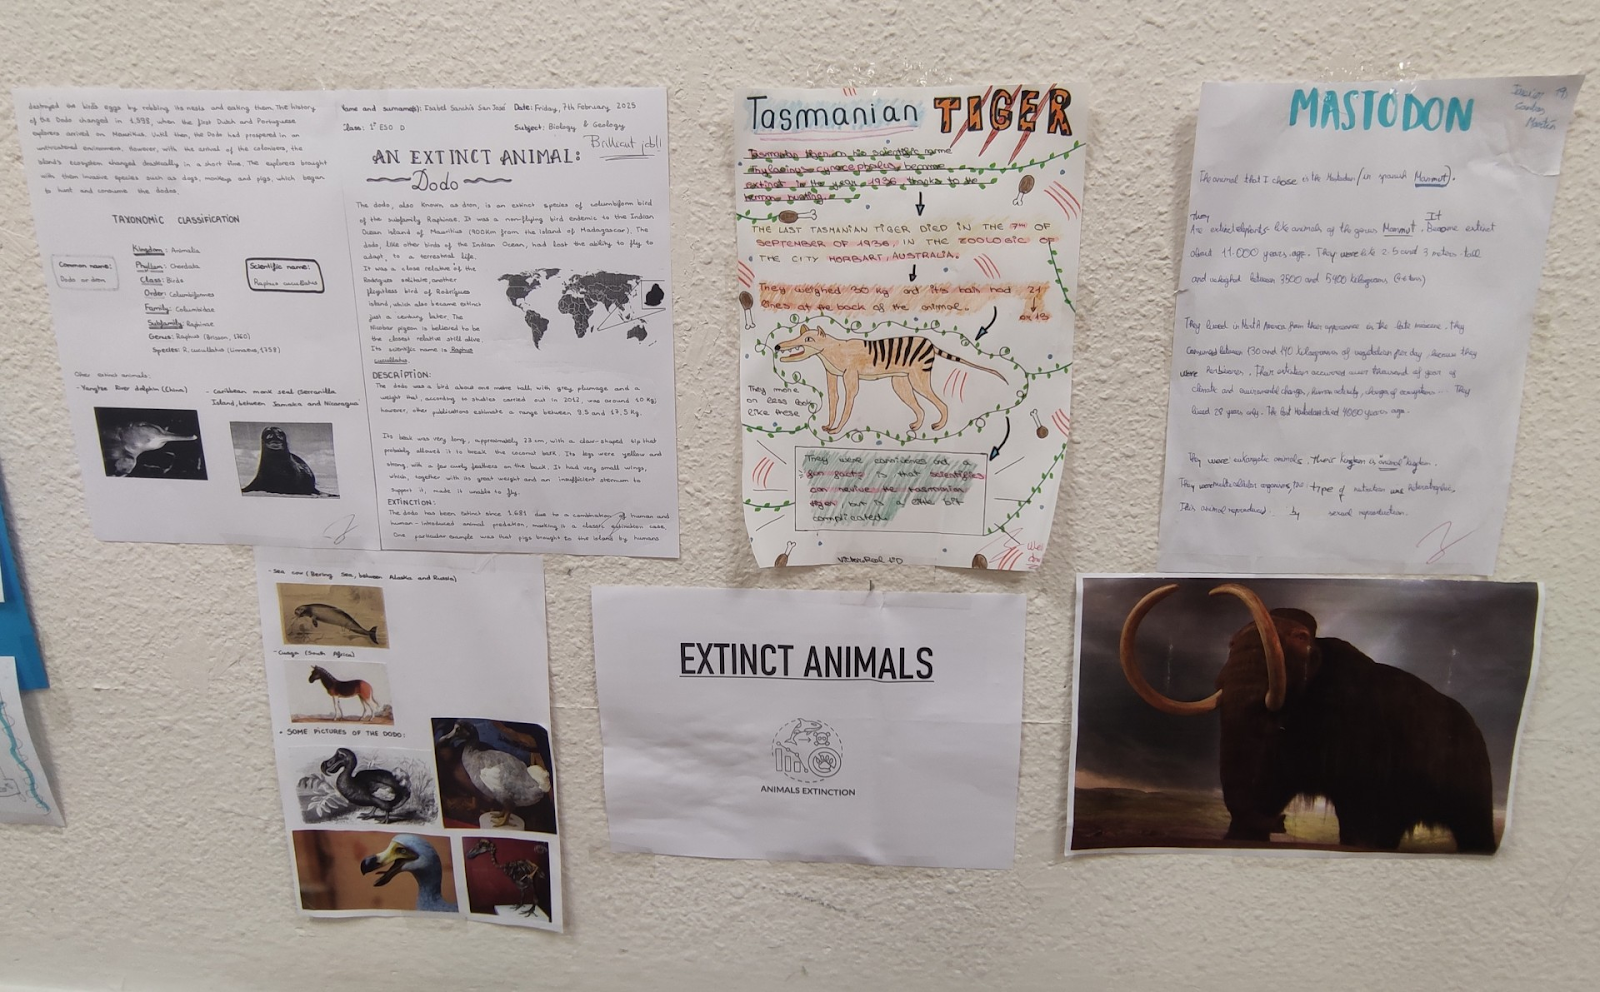 destroyed the bird's eggs by robbing its nests and eating them. The history
of the Dodo changed in 1.598, when the first Dutch and Portuguese
explorers arrived on Mauritius. Until then, the Dodo had prospered in an
environment. However, with the arrival of the colonizers, the
island's ecosystem changed drastically in a short time. The explorers brought
with them invasive species such as dogs, monkeys and pigs, which began
to hunt and consume the dodos.
TAXONOMIC CLASSIFICATION
Common name:
Dodo or dron
Kingdom: Animalia
Phyllum: Chordata
Class: Birds
Order: Columbiformes
Family: Columbidae
Subfamily: Raphinae
Genus: Raphus (Brisson, 1760)
Species: R. cucullatus (Linnaeus, 1758)
Scientific name:
Raphus cucullatus
Other extinct animals:
- Yangtze River dolphin (China)
- Caribbean monk seal (Serranilla
Island, between Jamaica and Nicaragua
Name and surname(s): Isabel Sanchis San José Date: Friday, 7th February 2025
Class: 1º ESO D Subject: Biology & Geology
Brilliant job!!
AN EXTINCT ANIMAL:
Dodo
The dodo, also known as dron, is an extinct species of columbiform bird
of the subfamily Raphinae. It was a non-flying bird endemic to the Indian
Ocean island of Mauritius (900km from the island of Madagascar). The
dodo, like other birds of the Indian Ocean, had lost the ability to fly to
adapt, to a terrestrial life.
It was a close relative of the
Rodrigues solitaire, another
flightless bird of Rodrigues
island, which also became extinct
just a century later. The
Nicobar pigeon is believed to be
the closest relative still alive.
Its scientific name is Raphus
cucullatus.
DESCRIPTION:
The dodo was a bird about one metre tall with grey plumage and a
weight that, according to studies carried out in 2012, was around 10 Kg;
however, other publications estimate a range between 9.5 and 17,5 Kg.
Its beak was very long, approximately 23 cm, with a claw-shaped tip that
probably allowed it to break the coconut bark. Its legs were yellow and
strong, with a few curly feathers on the back. It had very small wings,
which, together with its great weight and an insufficient sternum to
support it, made it unable to fly.
EXTINCTION:
The dodo has been extinct since 1.681 due to a combination of human and
human-introduced animal predation, meeting is a classic case.
One particular example was that pigs brought to the island by humans
- Sea cow (Bering Sea, between Alaska and Russia)
- Cuaga (South Africa)
• SOME PICTURES OF THE DODO:
Tasmanian TIGER
Tasmanian tiger or his scientific name
thylacinus cynocephalus became
extinct in the year 1936 thanks to the
human hunting.
THE LAST TASMANIAN TIGER DIED IN THE 7TH OF
SEPTEMBER OF 1936, IN THE ZOOLOGIC OF
THE CITY HORBART, AUSTRALIA.
They weighed 30 Kg and its hair had 21
lines at the back of the animal. or 18
They move
on less foot
like these
They were carnivores and a
fun facts is that scientifics
can revive the tasmanian
tiger but a little bit
complicated.
EXTINCT ANIMALS
ANIMALS EXTINCTION
MASTODON
The animal that I chose is the Mastodon (in spanish Mamut).
They It
Are extinct elephants-like animals of the genus Mammut. Become extinct
about 11.000 years ago. They were like 2.5 and 3 meters tall
and weighed between 3500 and 5400 kilograms
They lived in North America from their appearance in the late miocene. They
Consumed between 130 and 140 kilograms of vegetation per day, because they
were herbivores. Their extinction occurred over thousand of years by
climate and environmental changes, human activity, changes of ecosystems... They
lived 28 years only. The last Mastodon died 4000 years ago.
They were eukaryotic animals. Their kingdom is "animal" kingdom.
They were multicellular organisms, the type of nutrition was heterotrophic.
This animal reproduced by sexual reproduction.